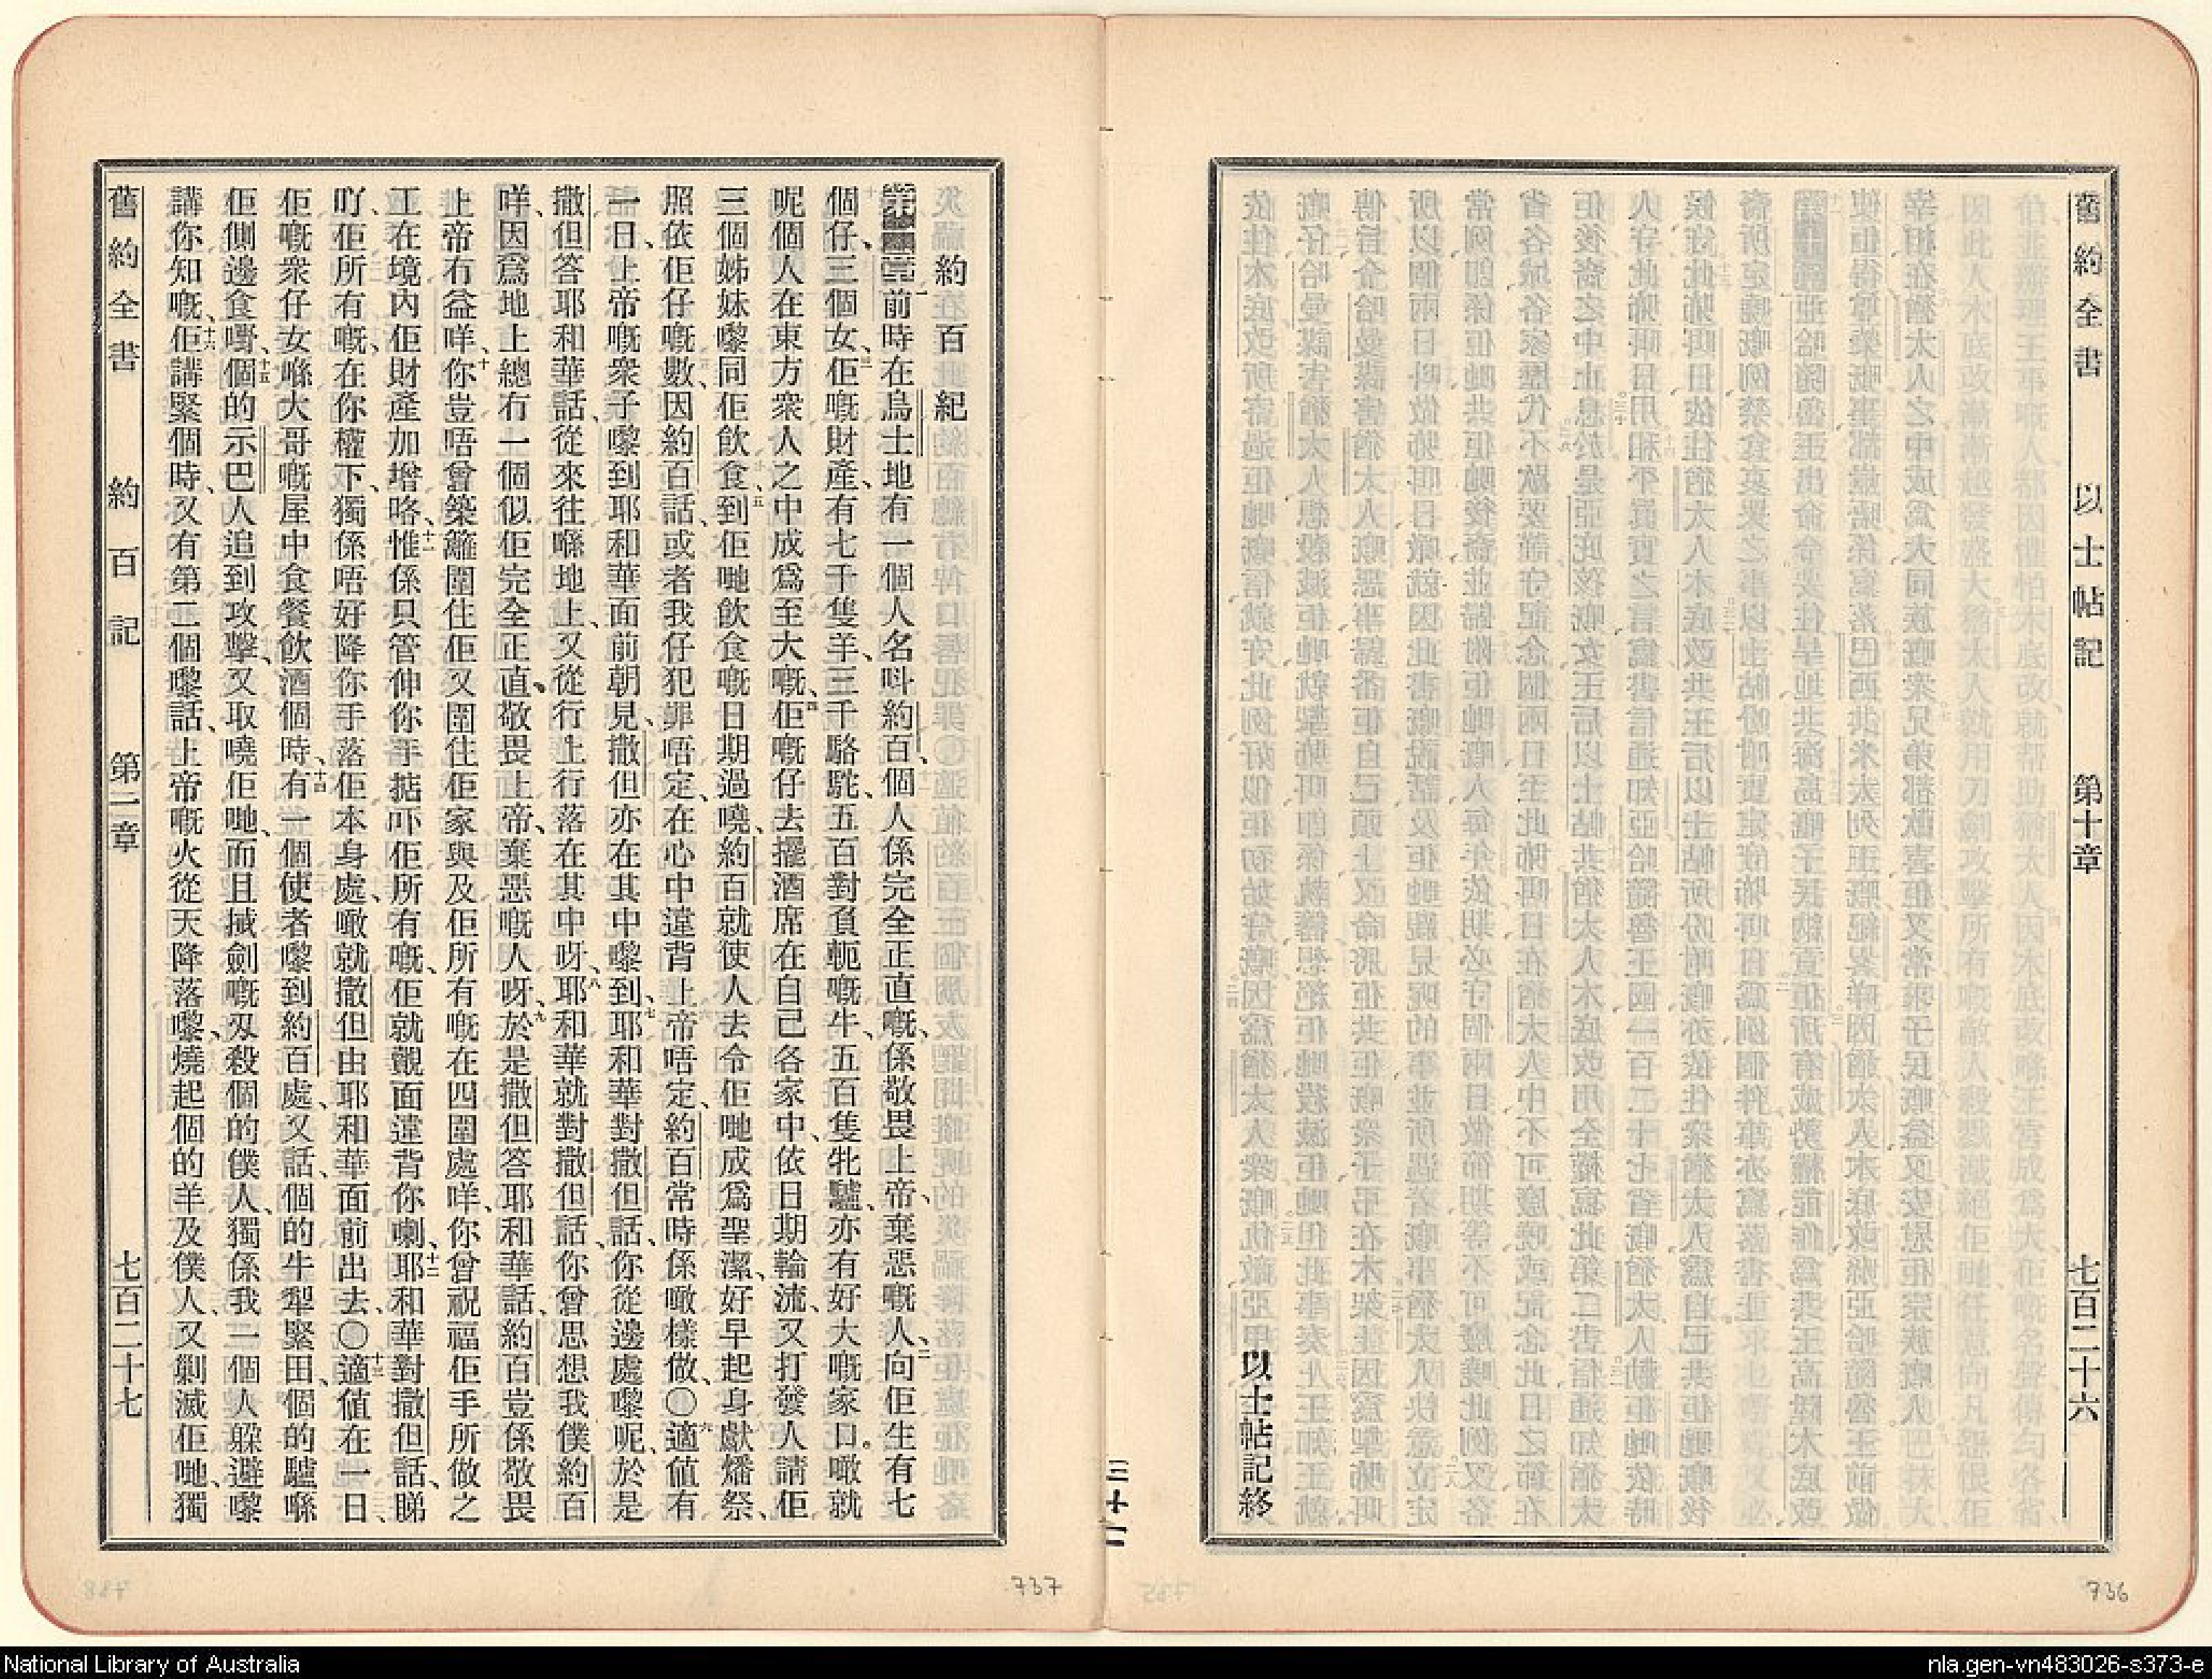 舊約全書 以士帖記 第十章 七百二十六
以士帖記終
三十二
約百紀
一前時在烏士地有一個人名呌約百、個人係完全正直嘅、係敬畏上帝、棄惡嘅人、二向佢生有七
個仔、三個女、三佢嘅財產、有七千隻羊、三千駱駝、五百對負軛嘅牛、五百隻牝驢、亦有好大嘅家口。噉就
呢個人在東方衆人之中成爲至大嘅、四佢嘅仔去擺酒席在自己各家中、依日期輪流、又打發人請佢
三個姊妹嚟同佢飲食、五到佢哋飲食嘅日期過嘵、約百就使人去令佢哋成爲聖潔、好早起身獻燔祭、
照依佢仔嘅數、因約百話、或者我仔犯罪唔定、在心中違背上帝唔定、約百常時係噉樣做、〇六適值有
一日、上帝嘅衆子、嚟到耶和華面前朝見、撒但亦在其中嚟到、七耶和華對撒但話、你從邊處嚟呢、於是
撒但答耶和華話、從來往喺地上、又從行上行落在其中呀、八耶和華就對撒但話、你曾思想我僕約百
咩、因爲地上總冇一個似佢完全正直、敬畏上帝、棄惡嘅人呀、九於是撒但答耶和華話、約百豈係敬畏
上帝冇益咩、十你豈唔曾築籬圍住佢又圍住佢家與及佢所有嘅在四圍處咩、你曾祝福佢手所做之
工在境內佢財產加增咯、十一惟係只管伸你手掂吓佢所有嘅、佢就觀面違背你喇、十二耶和華對撒但話、睇
吖、佢所有嘅、在你權下、獨係唔好降你手落佢本身處、噉就撒但由耶和華面前出去、〇十三適值在一日、
佢嘅衆仔女喺大哥嘅屋中食餐飲酒個時、十四有一個使者嚟到約百處、又話、個的牛犁緊田、個的驢喺
佢側邊食嘢、十五個的示巴人追到攻擊、又取嘵佢哋、而且㨒劍嘅刄殺個的僕人、獨係我一個人躲避嚟
講你知嘅、十六佢講緊個時、又有第二個嚟話、上帝嘅火從天降落嚟、燒起個的羊及僕人、又剿滅佢哋、獨
舊約全書 約百記 第一章 七百二十七
737
736
National Library of Australia
nla.gen-vn483026-s373-e